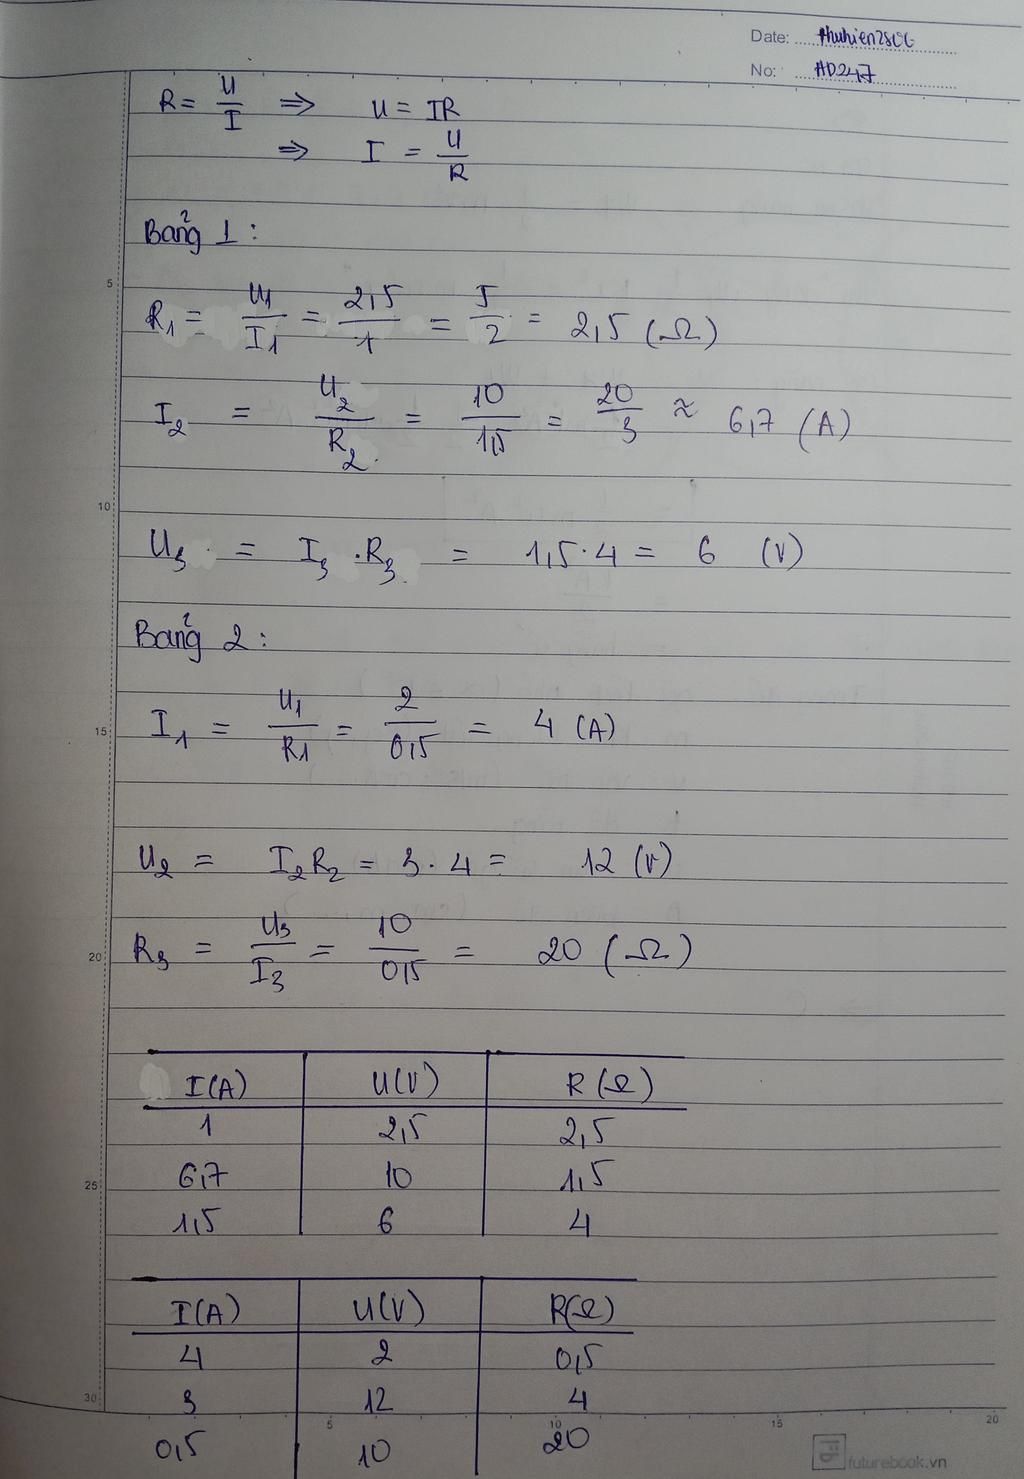 Date: thuhien2806
No: HD247
R = U/I ⇒ U = IR
⇒ I = U/R
Bảng 1:
R₁ = U₁/I₁ = 2,5/1 = 5/2 = 2,5 (Ω)
I₂ = U₂/R₂ = 10/1,5 = 20/3 ≈ 6,7 (A)
U₃ = I₃ . R₃ = 1,5 . 4 = 6 (V)
Bảng 2:
I₁ = U₁/R₁ = 2/0,5 = 4 (A)
U₂ = I₂R₂ = 3 . 4 = 12 (V)
R₃ = U₃/I₃ = 10/0,5 = 20 (Ω)
I(A) U(V) R(Ω)
1 2,5 2,5
6,7 10 1,5
1,5 6 4
I(A) U(V) R(Ω)
4 2 0,5
3 12 4
0,5 10 20
5
10
15
20
25
30
5 10 15 20
futurebook.vn